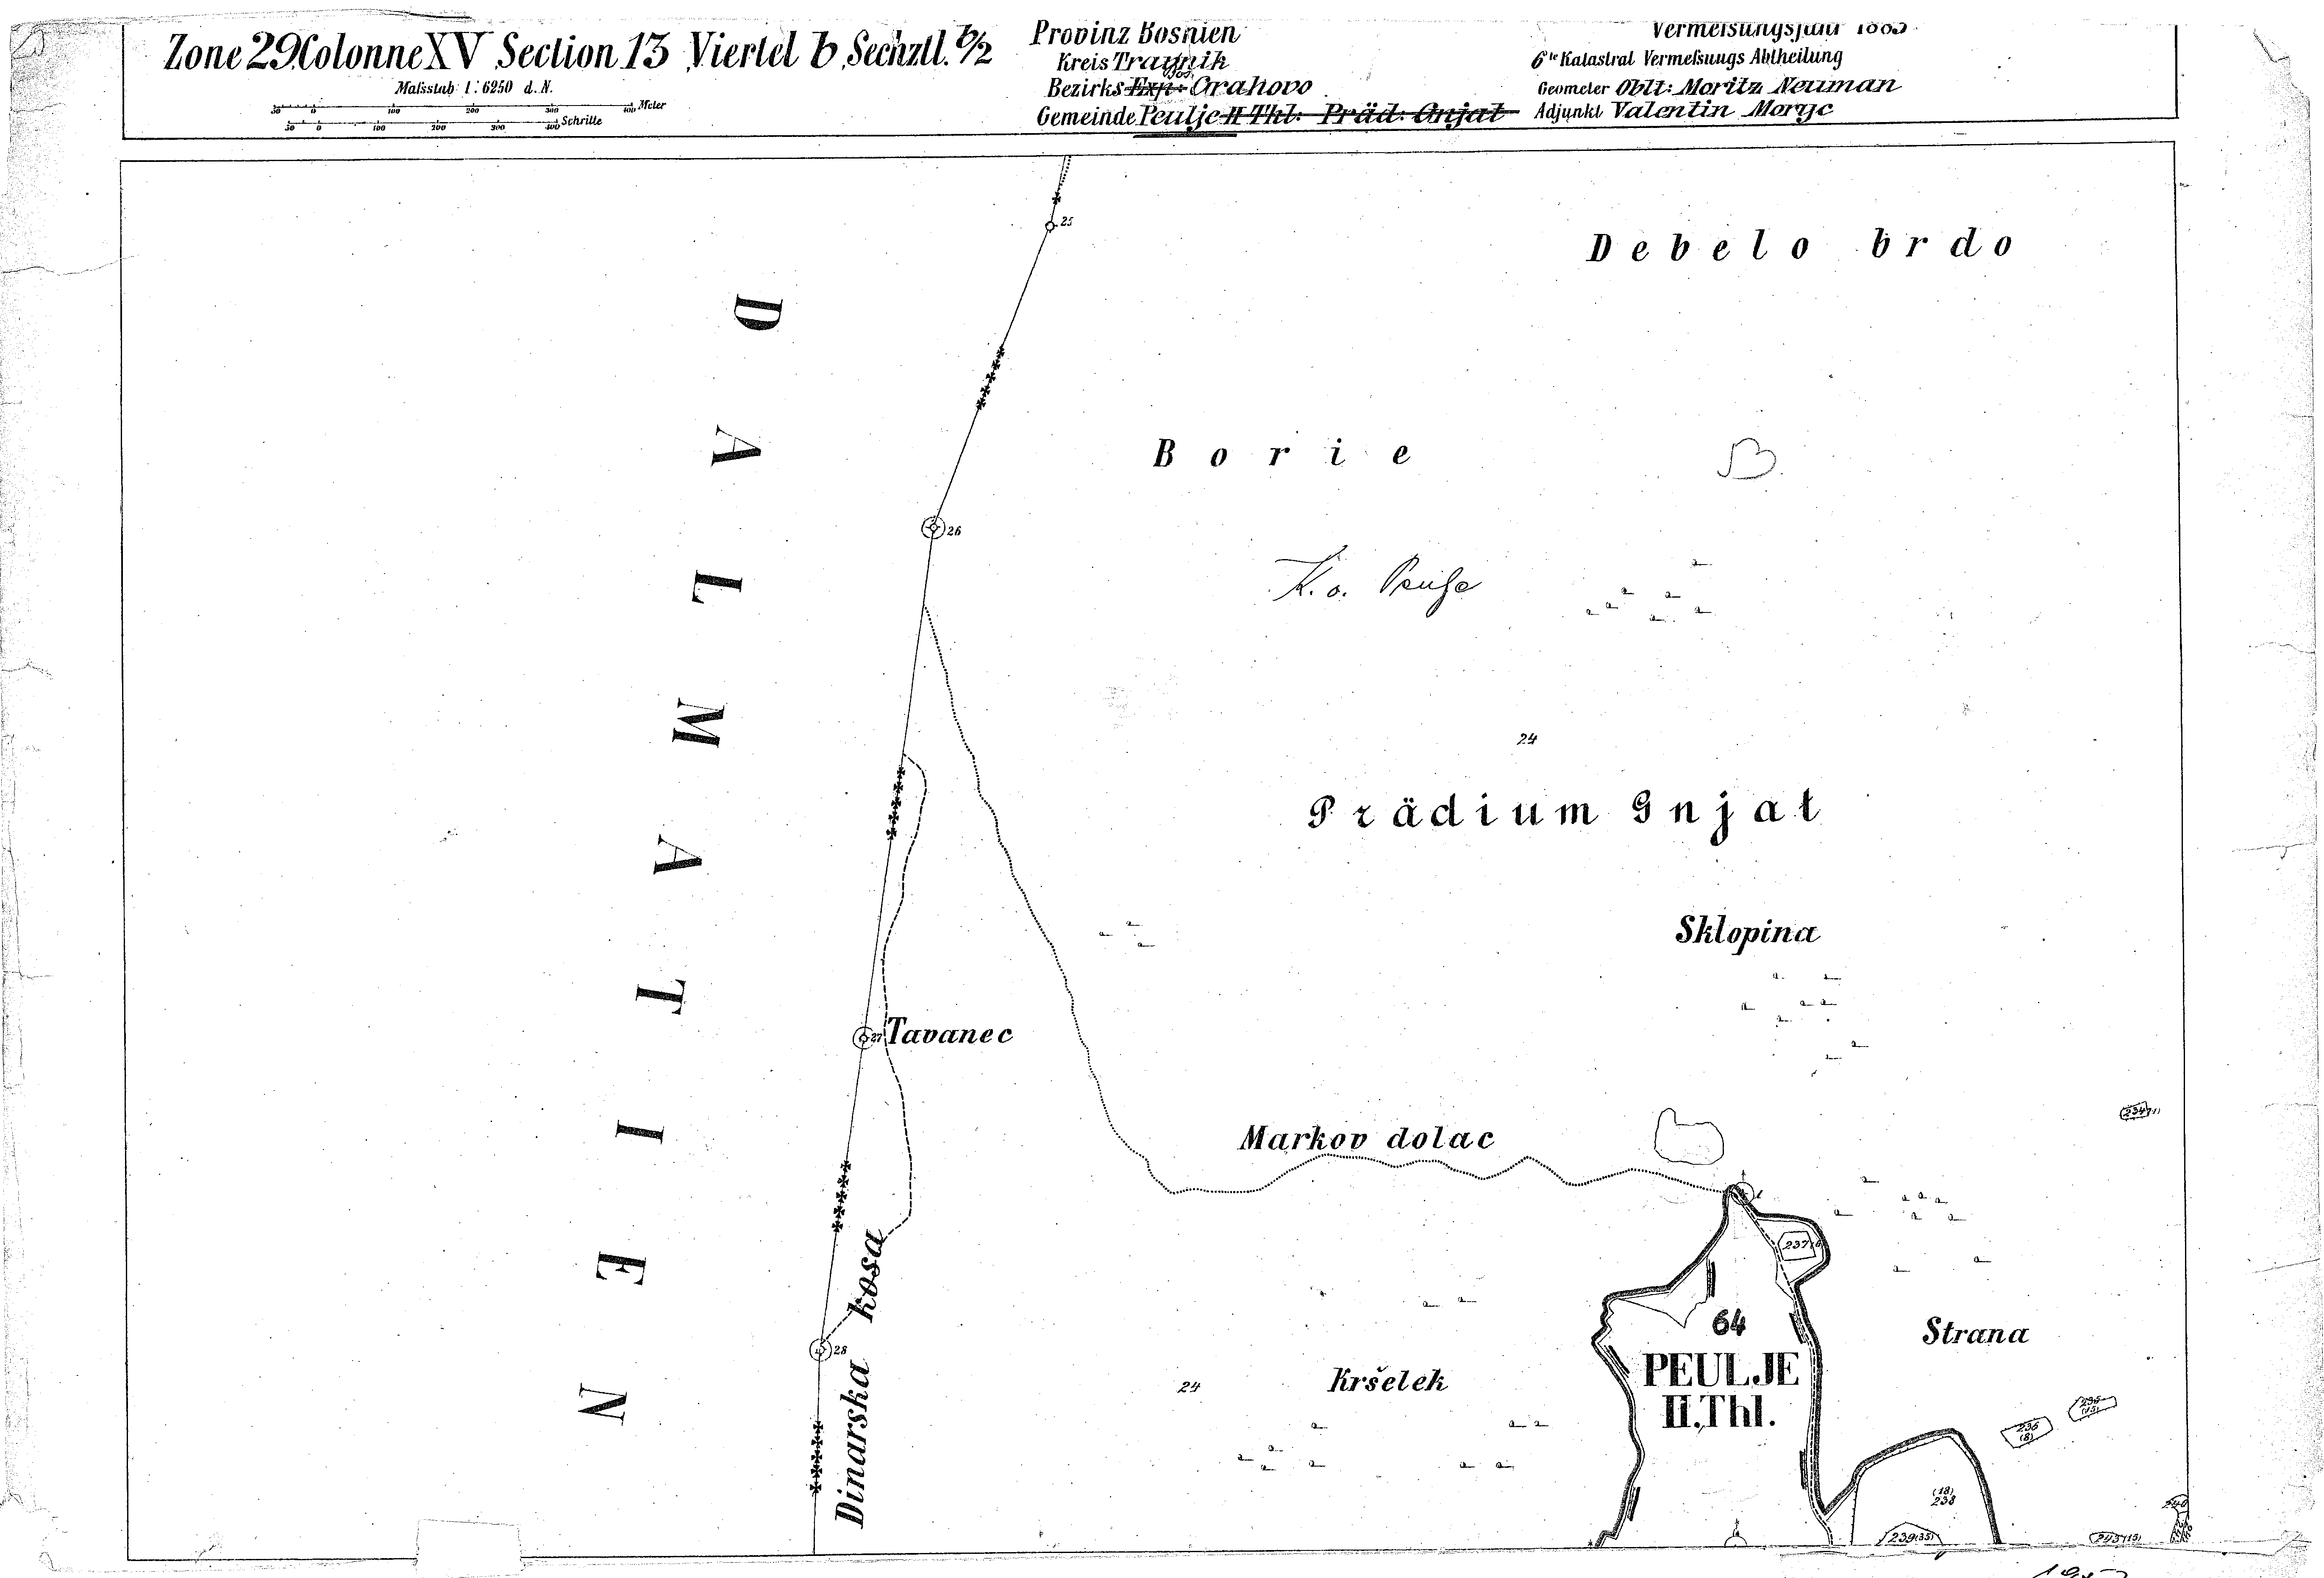 Zone 29 Colonne XV Section 13 Viertel b Sechztl. b/2
Maßstab 1:6250 d. N.
50 0 100 200 300 400 Meter
50 0 100 200 300 400 Schritte
Provinz Bosnien
Kreis Travnik
Bezirks Exp: Bos. Grahovo
Gemeinde Peulje II Thl: Präd: Gnjat
Vermeſsungsjahr 1883
6te Katastral Vermeſsungs Abtheilung
Geometer Oblt: Moritz Neuman
Adjunkt Valentin
25
Debelo brdo
DALMATIEN
Borie
B.
26
K.o. Peulje
24
Prädium Gnjat
Sklopina
27
Tavanec
234(1)
Markov dolac
1
237(6)
Dinarska kosa
64
Strana
28
PEULJE
24
Kršelek
II.Thl.
236
(8)
(18)
238
239(35)
240
243(15)